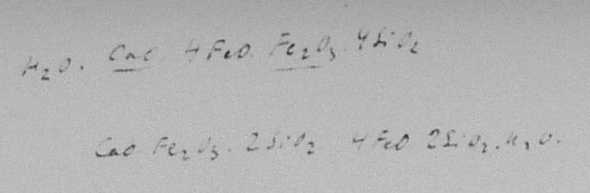 H₂O. CaO 4FeO. Fe₂O₃. 4SiO₂
CaO Fe₂O₃. 2SiO₂ 4FeO 2SiO₂. H₂O.